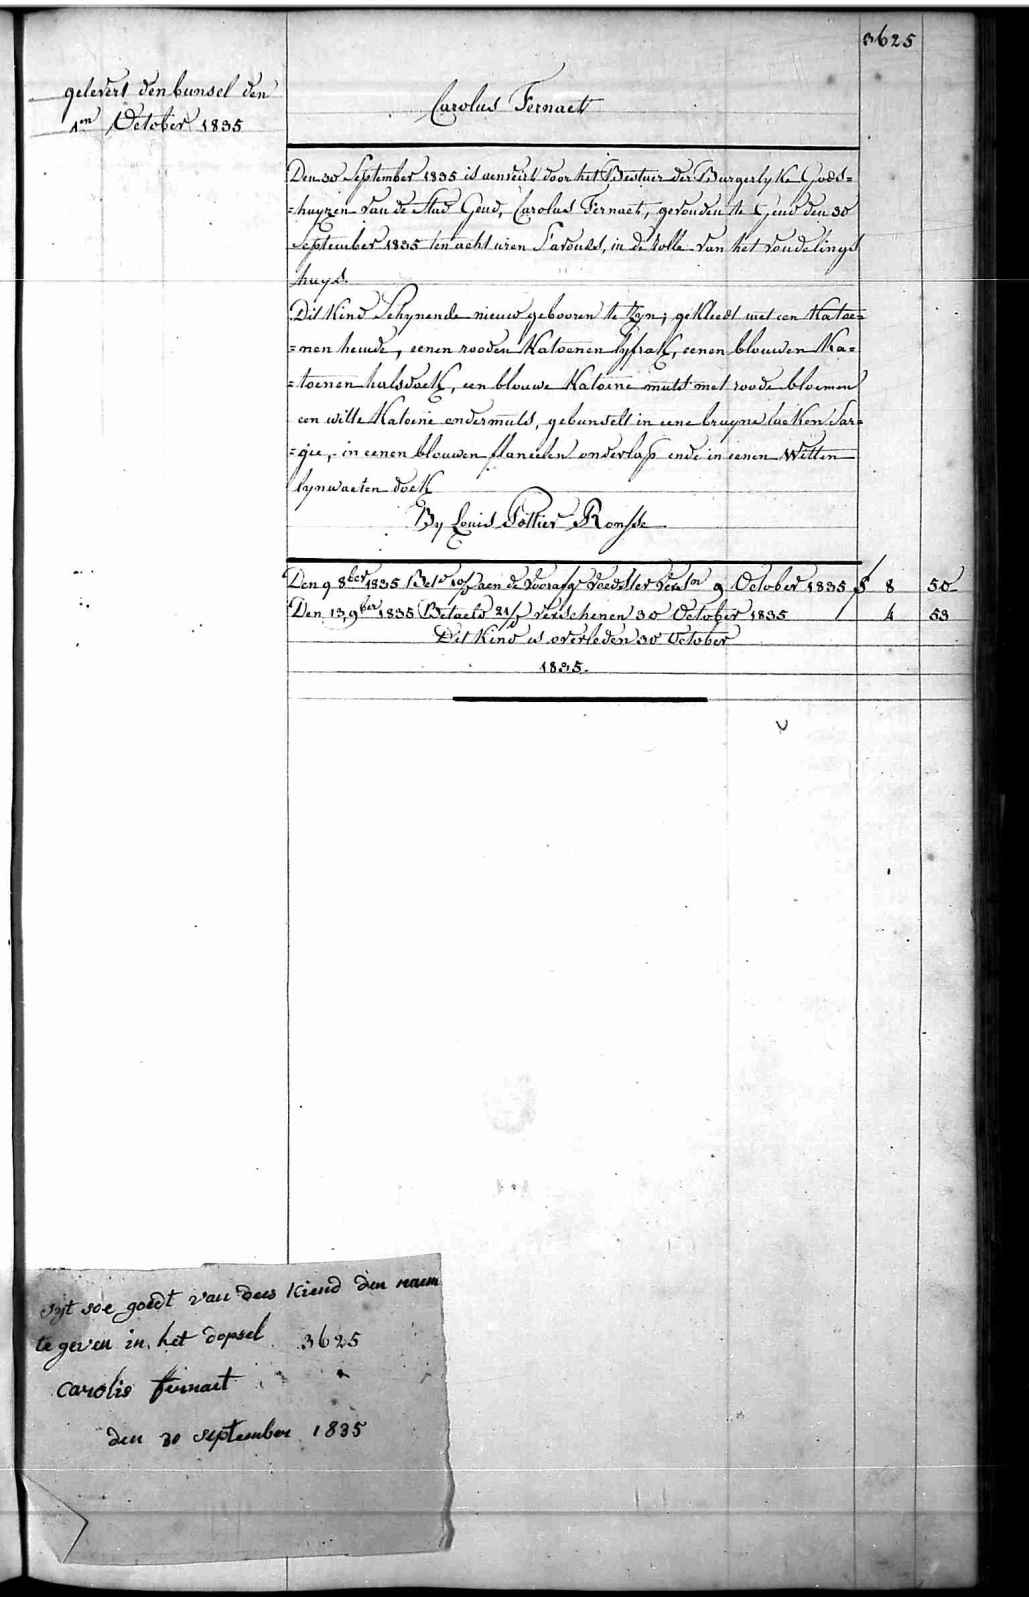 3625
gelevert den bunsel den
1en October 1835
Carolus Fernaet
Den 30 September 1835 is aenveirt door het Bestuer der Burgerlyke Gods=
=huyzen van de Stad Gend, Carolus Fernaet, gevonden te Gend den 30
September 1835 ten acht uren S'avonds, in de rolle van het vondelings
huys.
Dit Kind Schynende nieuw gebooren te Zyn; gekleedt met een Katoe=
=nen hemde, eenen rooden Katoenen lyfrak, eenen blauwen Ka=
=toenen halsdoek, een blouwe Katoene muts met roode bloemen
een witte Katoene ondermuts, gebunselt in eene bruyne laeken Sar=
=gie, in eenen blouwen flaneelen onderlap ende in eenen Witten
lynwaeten doek
By Louis Pottier Ronsse
Den 9 8ber 1835 Bets aen de voorafg Voedster 9 October 1835 8 50
Den 13, 9ber 1835 Betaeld verschenen 30 October 1835 4 53
Dit Kind is overleden 30 October
1835.
Syt soe goedt van dees Kiend den naem
te geven in het dopsel 3625
Carolis fernaet
den 30 september 1835